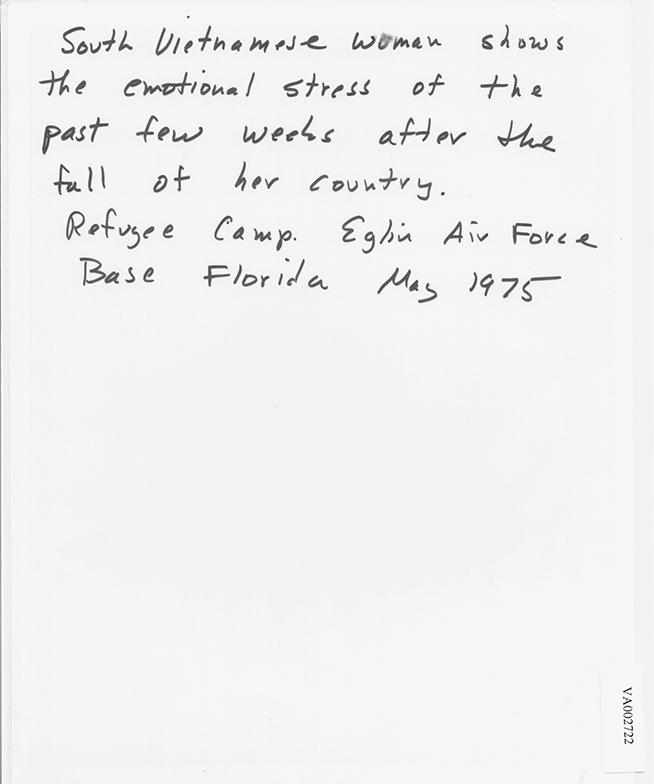 South Vietnamese woman shows
the emotional stress of the
past few weeks after the
fall of her country.
Refugee Camp. Eglin Air Force
Base Florida May 1975
VA002722